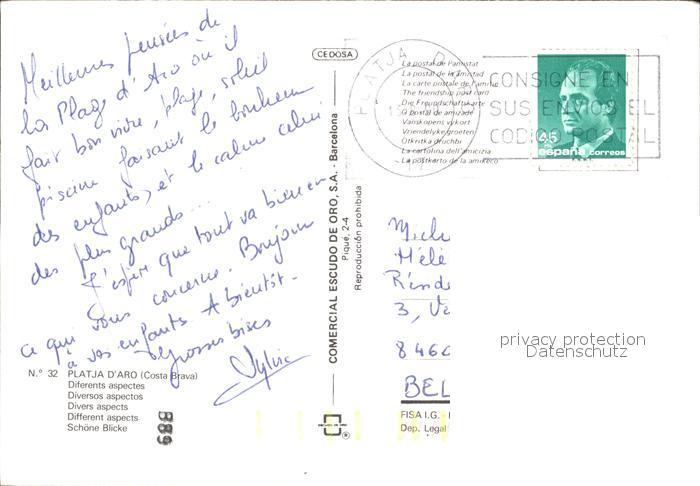 Meilleures pensées de
la Plage d'Aro où il
fait bon vivre, plage, soleil
piscine faisant le bonheur
des enfants, et le calme celui
des plus grands...
J'espère que tout va bien en
ce qui vous concerne. Bonjour
à vos enfants A bientôt.
Grosses bises
Sylvie
N.° 32 PLATJA D'ARO (Costa Brava)
Diferents aspectes
Diversos aspectos
Divers aspects
Different aspects
Schöne Blicke
889
CEDOSA
COMERCIAL ESCUDO DE ORO, S.A. - Barcelona
Piqué, 2-4
Reproducción prohibida
PLATJA D
La postal de l'amistat
La postal de la amistad
La carte postale de l'amitié
The friendship post card
Die Freundschaftskarte
O postal de amizade
Vanskopens vykort
Vriendelijke groeten
Otkritka druchbi
La cartolina dell'amicizia
La postkarto de la amikeco
CONSIGNE EN
SUS ENVIOS EL
CODIGO POSTAL
45
españa correos
Mich
Hélè
Réside
3, Va
8460
BEL
FISA I.G.
Dep. Legal
privacy protection
Datenschutz